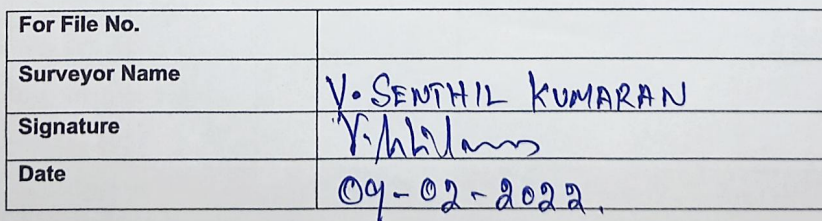 For File No.
Surveyor Name V. SENTHIL KUMARAN
Signature
Date 09-02-2022.